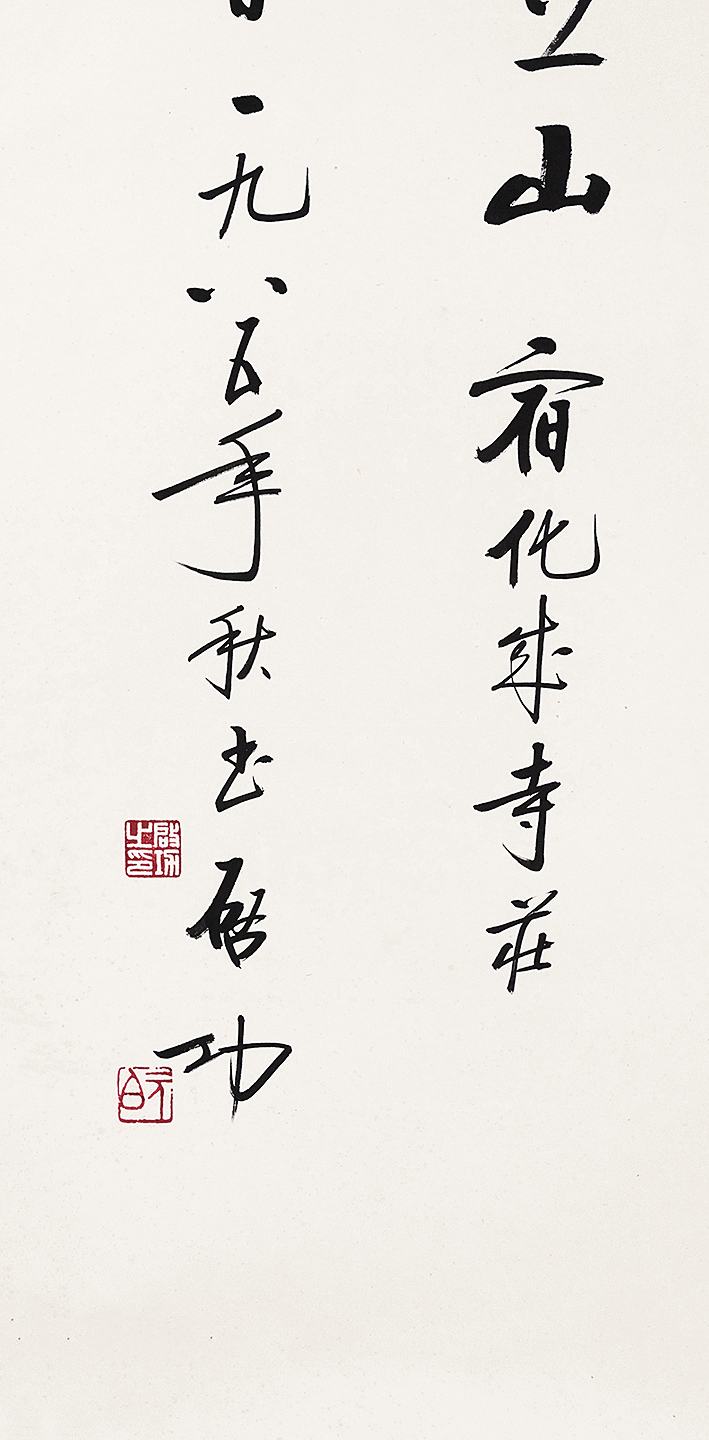 山宿化成寺莊
一九八五年秋书启功
啟功之印
元白